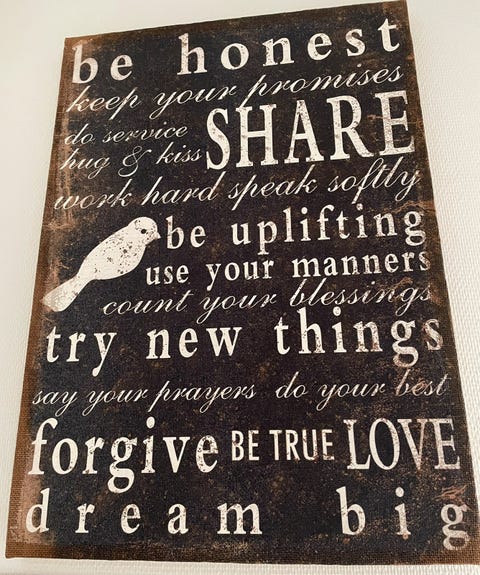 be honest
keep your promises
do service
hug & kiss
SHARE
work hard speak softly
be uplifting
use your manners
count your blessings
try new things
say your prayers do your best
forgive BE TRUE LOVE
dream big